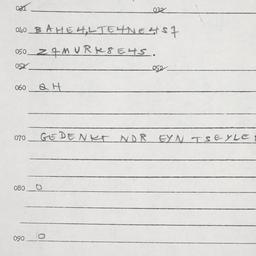 022 022
040 BAHE4,LTE4NE4S7
050 Z4MURK8E4S.
052 052
060 QH
070 GEDENKT NOR EYN TSEYLE
080 0
090 0